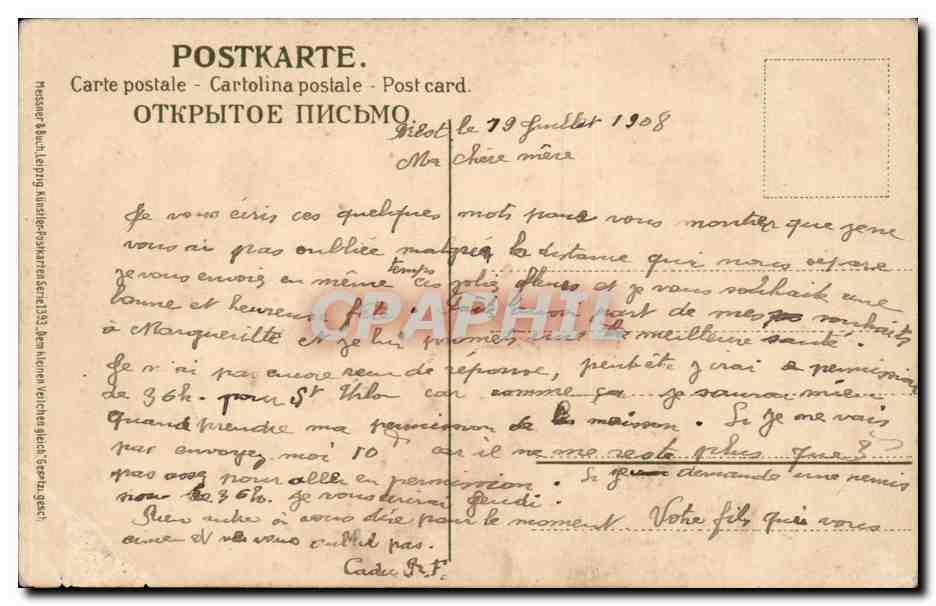 POSTKARTE.
Carte postale - Cartolina postale - Post card.
ОТКРЫТОЕ ПИСЬМО.
Brest le 19 Juillet 1908
Ma chère mère
Je vous écris ces quelques mots pour vous montrer que je ne
vous ai pas oubliée malgré la distance qui nous sépare
je vous envois en même temps ces jolies fleurs et je vous souhaite une
bonne et heureuse fête. part de mes souhaits
à Marguerite et je lui meilleure santé.
Je n'ai pas encore reçu de réponse, peut être j'irai permission
de 36h. pour St car comme ça je saurai mieux
quand prendre ma permission de la maison. Si je me vais
pas envoyez moi 10 car il ne me reste plus que 3
pas assez pour aller en permission. Si je demande une
de 36h. je vous Jeudi.
Rien autre à vous dire pour le moment. Votre fils qui vous
aime et ne vous oublie pas.
Meissner & Buch, Leipzig. Künstler-Postkarten Serie 1393 „Dem kleinen Veilchen gleich" Gesetzl. gesch.
CPAPHIL